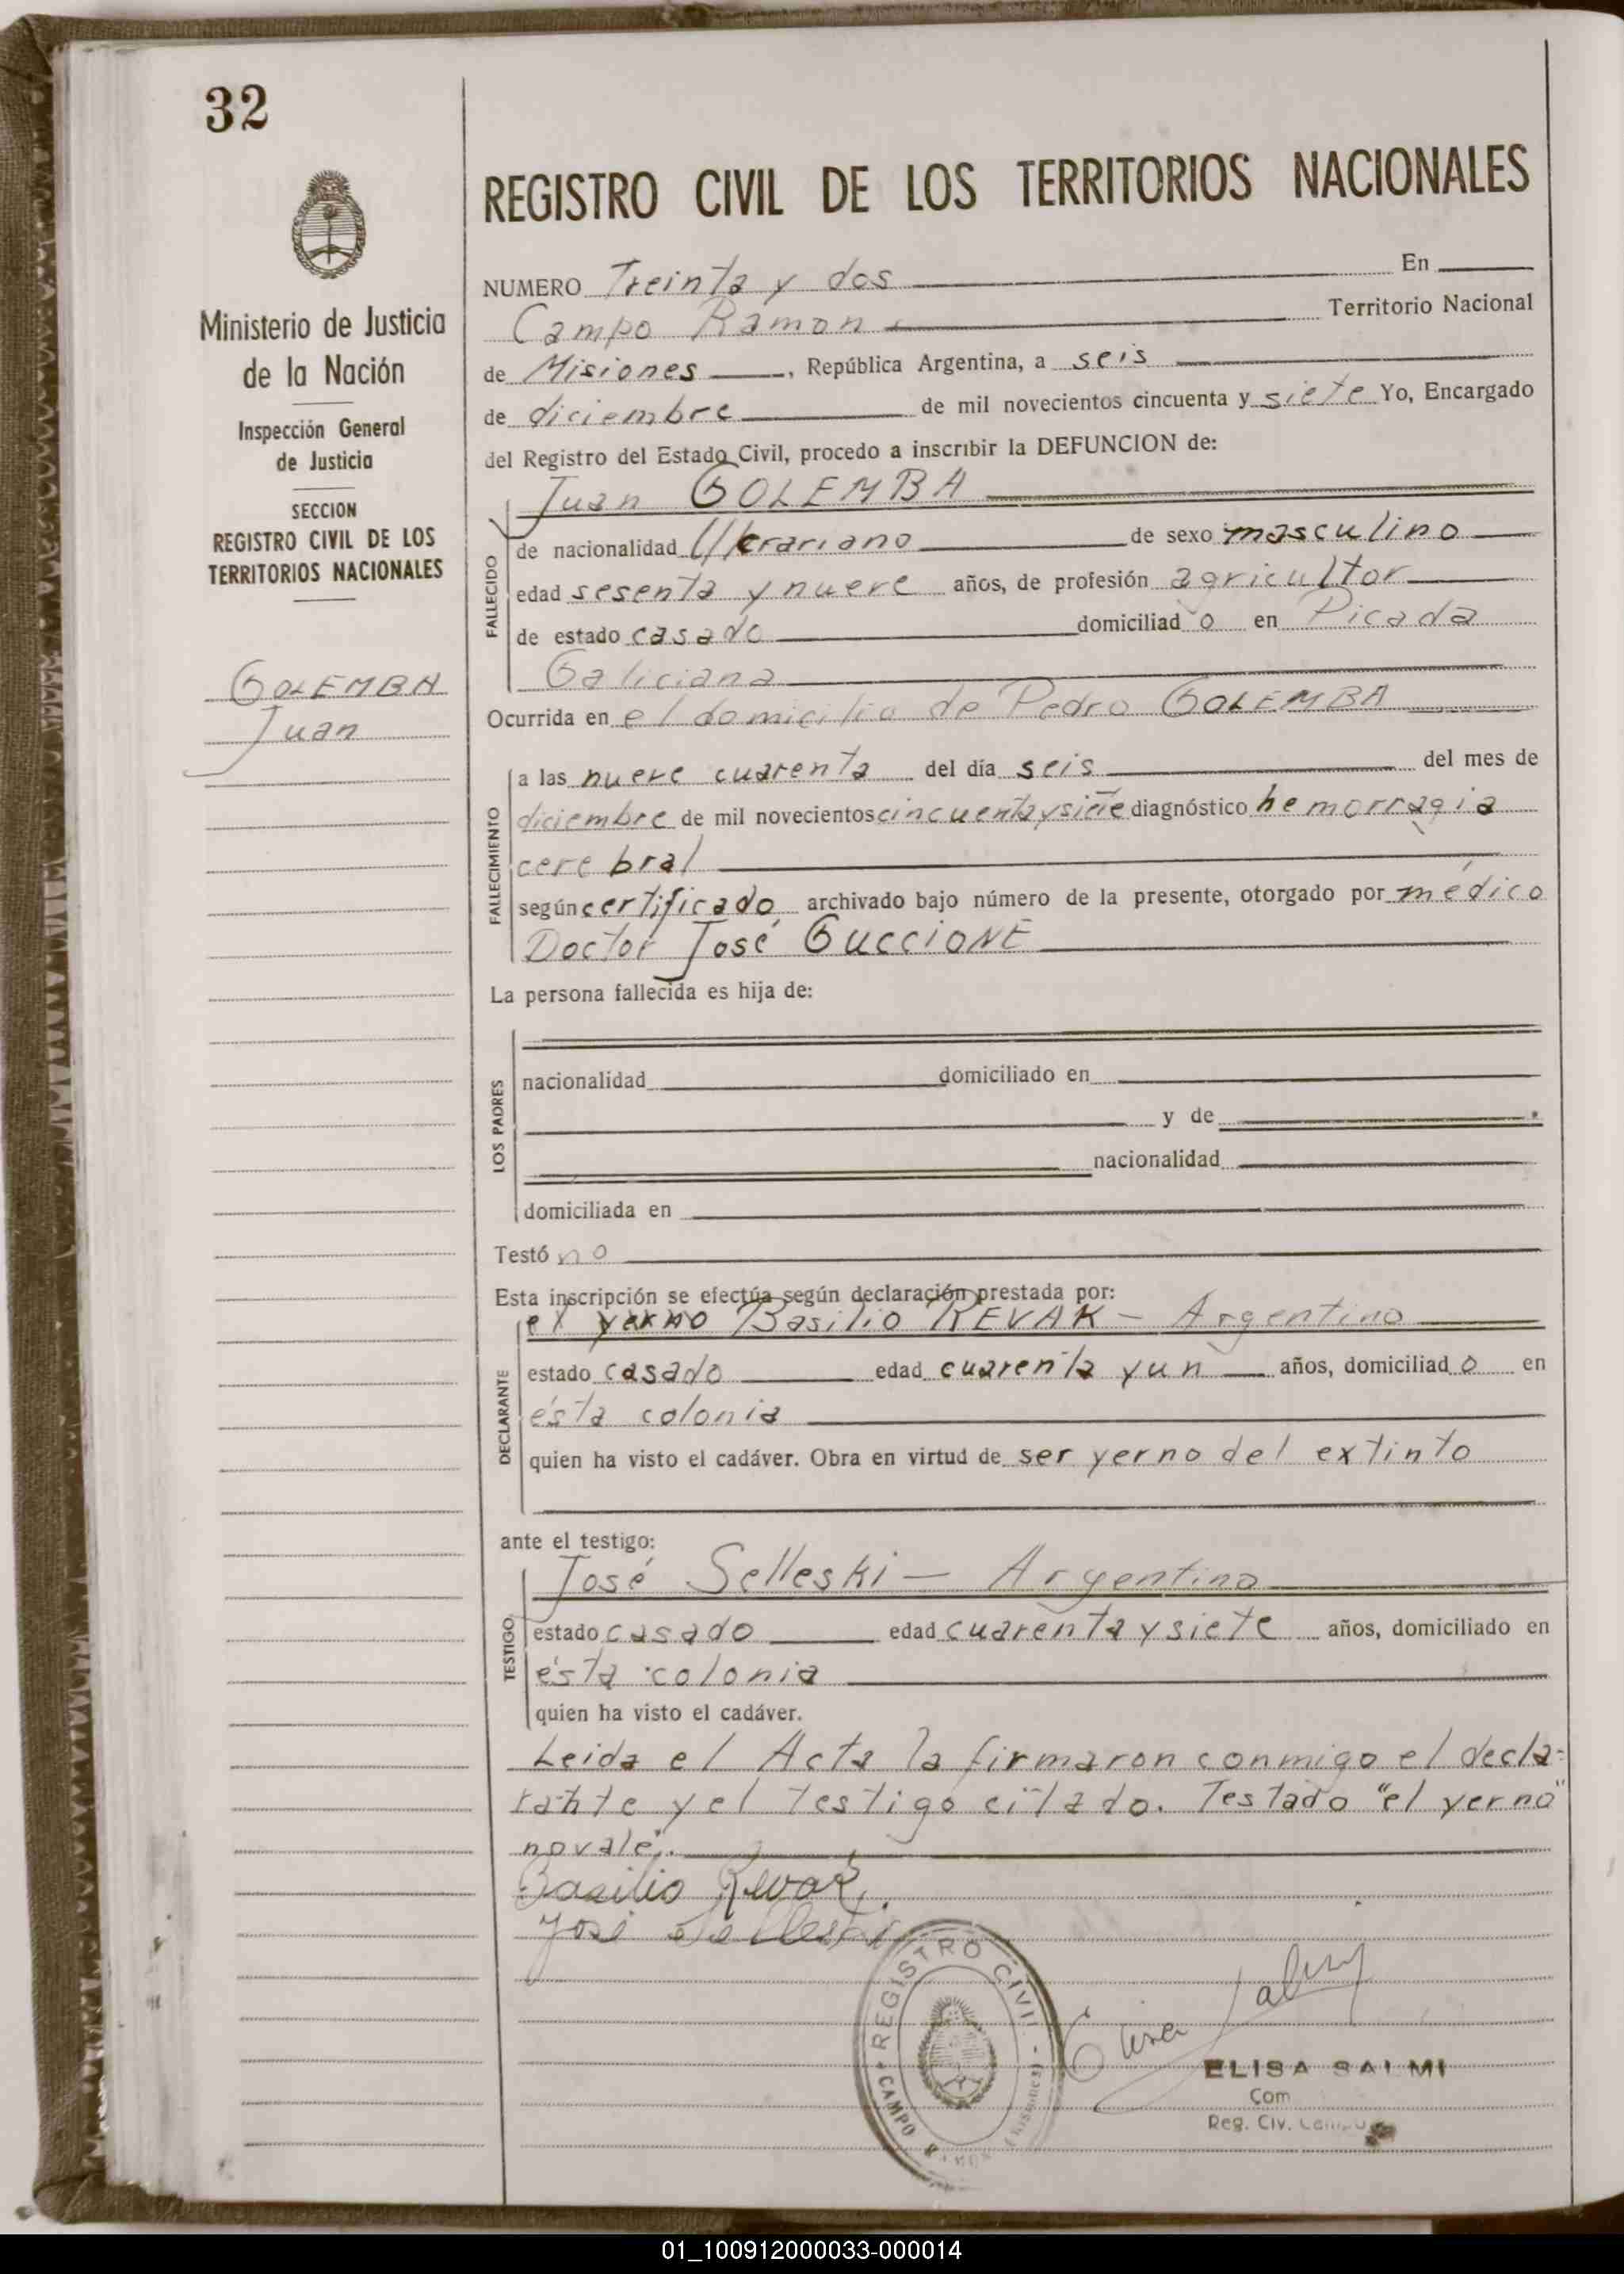 32
REGISTRO CIVIL DE LOS TERRITORIOS NACIONALES
Ministerio de Justicia
de la Nación
Inspección General
de Justicia
SECCION
REGISTRO CIVIL DE LOS
TERRITORIOS NACIONALES
GOLEMBA
Juan
NUMERO Treinta y dos En
Campo Ramon Territorio Nacional
de Misiones, República Argentina, a seis
de diciembre de mil novecientos cincuenta y siete Yo, Encargado
del Registro del Estado Civil, procedo a inscribir la DEFUNCION de:
Juan GOLEMBA
FALLECIDO
de nacionalidad Ukrariano de sexo masculino
edad sesenta y nueve años, de profesión agricultor
de estado casado domiciliado en Picada
Galiciana
Ocurrida en el domicilio de Pedro GOLEMBA
FALLECIMIENTO
a las nueve cuarenta del día seis del mes de
diciembre de mil novecientos cincuenta y siete diagnóstico hemorragia
cerebral
según certificado archivado bajo número de la presente, otorgado por médico
Doctor José GUCCIONE
La persona fallecida es hija de:
LOS PADRES
nacionalidad domiciliado en
y de
nacionalidad
domiciliada en
Testó no
Esta inscripción se efectúa según declaración prestada por:
el yerno Basilio REVAK - Argentino
DECLARANTE
estado casado edad cuarenta y un años, domiciliado en
ésta colonia
quien ha visto el cadáver. Obra en virtud de ser yerno del extinto
ante el testigo:
José Selleski - Argentino
TESTIGO
estado casado edad cuarenta y siete años, domiciliado en
ésta colonia
quien ha visto el cadáver.
Leida el Acta la firmaron conmigo el decla-
rante y el testigo citado. Testado "el yerno"
no vale.
Basilio Revak
José Selleski
REGISTRO CIVIL
CAMPO
Elisa Salmi
ELISA SALMI
Com
Reg. Civ.
01_100912000033-000014